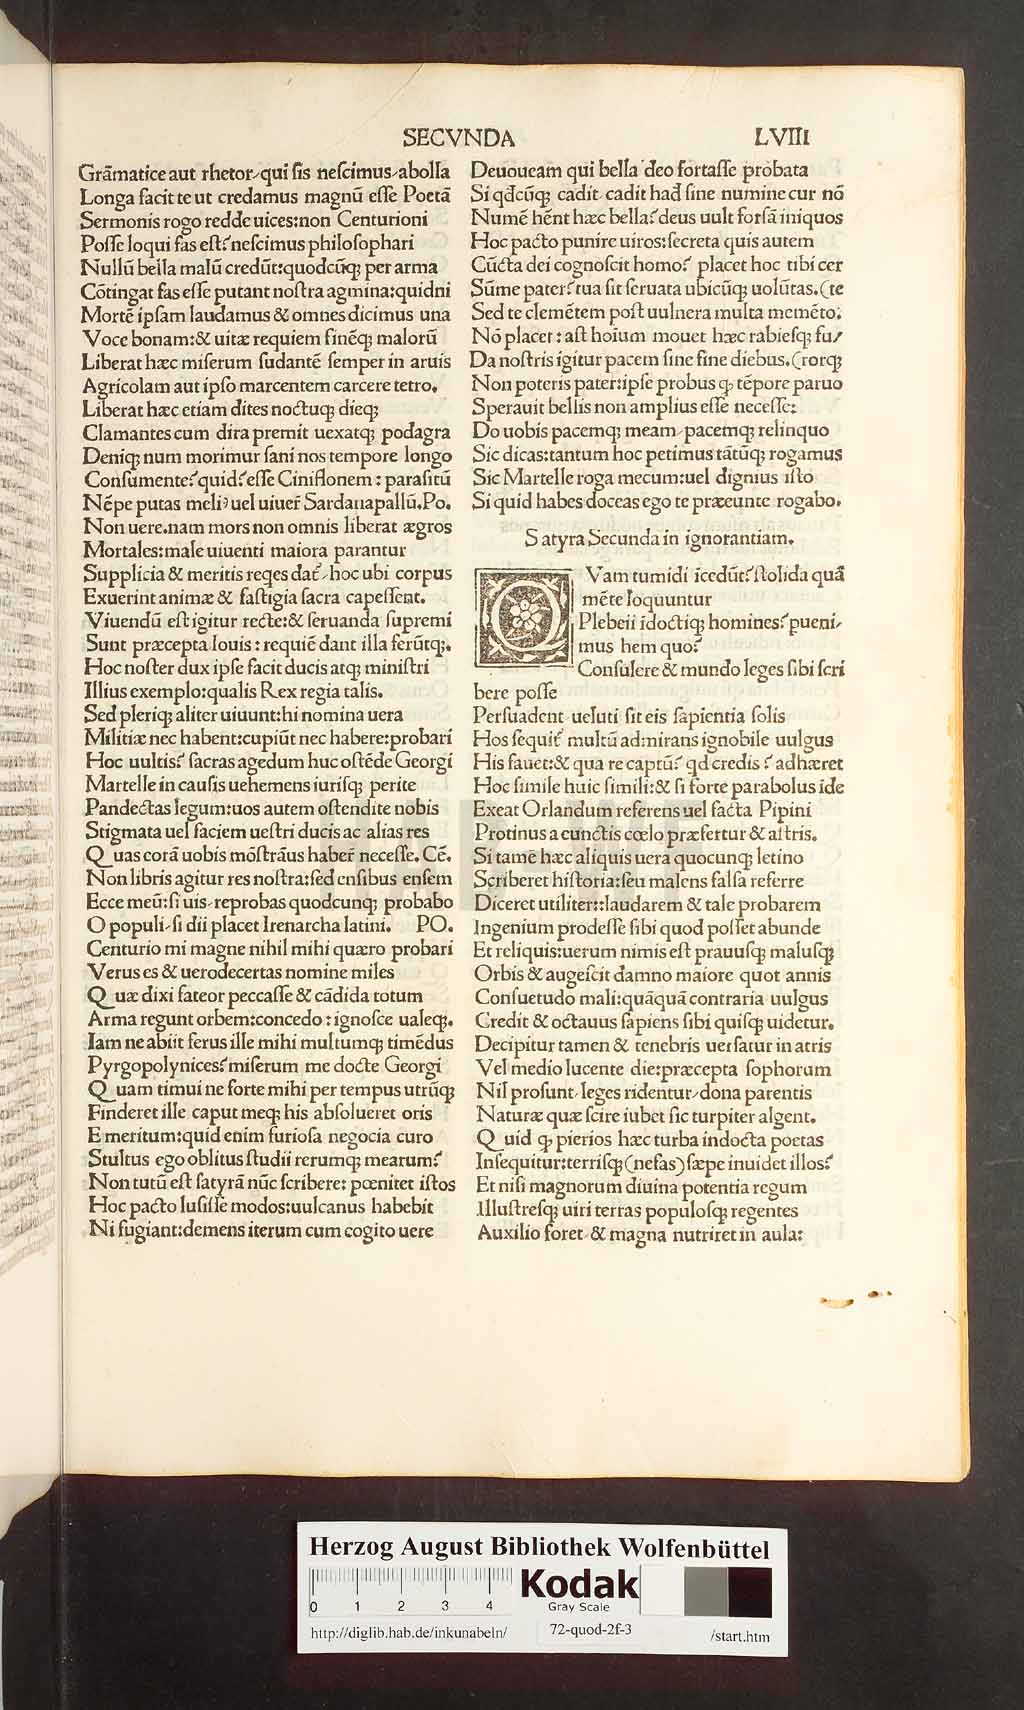 SECVNDA LVIII
Grāmatice aut rhetor⸝qui ſis neſcimus⸝abolla
Longa facit te ut credamus magnū eſſe Poetā
Sermonis rogo redde uices:non Centurioni
Poſſe loqui fas eſt?neſcimus philoſophari
Nullū bella malū credūt:quodcūq; per arma
Cōtingat fas eſſe putant noſtra agmina:quidni
Mortē ipſam laudamus & omnes dicimus una
Voce bonam:& uitæ requiem finēq; malorū
Liberat hæc miſerum ſudantē ſemper in aruis
Agricolam aut ipſo marcentem carcere tetro.
Liberat hæc etiam dites noctuq; dieq;
Clamantes cum dira premit uexatq; podagra
Deniq; num morimur ſani nos tempore longo
Conſumente?quid?eſſe Ciniflonem: paraſitū
Nēpe putas meliꝰ uel uiuer̄ Sardanapallū.Po.
Non uere.nam mors non omnis liberat ægros
Mortales:male uiuenti maiora parantur
Supplicia & meritis reqes dat̄⸝hoc ubi corpus
Exuerint animæ & faſtigia ſacra capeſſent.
Viuendū eſt igitur recte:& ſeruanda ſupremi
Sunt præcepta Iouis: requiē dant illa ferūtq;.
Hoc noſter dux ipſe facit ducis atq; miniſtri
Illius exemplo:qualis Rex regia talis.
Sed pleriq; aliter uiuunt:hi nomina uera
Militiæ nec habent:cupiūt nec habere:probari
Hoc uultis? ſacras agedum huc oſtēde Georgi
Martelle in cauſis uehemens iuriſq; perite
Pandectas legum:uos autem oſtendite nobis
Stigmata uel faciem ueſtri ducis ac alias res
Quas corā uobis mōſtrāus haber̄ neceſſe. Cē.
Non libris agitur res noſtra:ſed enſibus enſem
Ecce meū:ſi uis⸝reprobas quodcunq; probabo
O populi⸝ſi dii placet Irenarcha latini. PO.
Centurio mi magne nihil mihi quæro probari
Verus es & uerodecertas nomine miles
Quæ dixi fateor peccaſſe & cādida totum
Arma regunt orbem:concedo: ignoſce ualeq;.
Iam ne abiit ferus ille mihi multumq; timēdus
Pyrgopolynices?miſerum me docte Georgi
Quam timui ne forte mihi per tempus utrūq;
Finderet ille caput meq; his abſolueret oris
Emeritum:quid enim furioſa negocia curo
Stultus ego oblitus ſtudii rerumq; mearum?
Non tutū eſt ſatyrā nūc ſcribere: pœnitet iſtos
Hoc pacto luſiſſe modos:uulcanus habebit
Ni fugiant:demens iterum cum cogito uere
Deuoueam qui bella deo fortaſſe probata
Si qdcūq; cadit cadit had ſine numine cur nō
Numē hēnt hæc bella?deus uult forſā iniquos
Hoc pacto punire uiros:ſecreta quis autem
Cūcta dei cognoſcit homo? placet hoc tibi cer
Sūme pater?tua ſit ſeruata ubicūq; uolūtas.(te
Sed te clemētem poſt uulnera multa memēto:
Nō placet: aſt hoīum mouet hæc rabieſq; fu⸗
Da noſtris igitur pacem ſine fine diebus.(rorq;
Non poteris pater:ipſe probus ꝙ tēpore paruo
Sperauit bellis non amplius eſſe neceſſe:
Do uobis pacemq; meam⸝pacemq; relinquo
Sic dicas:tantum hoc petimus tātūq; rogamus
Sic Martelle roga mecum:uel dignius iſto
Si quid habes doceas ego te præeunte rogabo.
Satyra Secunda in ignorantiam.
QVam tumidi icedūt?ſtolida quā
mēte loquuntur
Plebeii idoctiq; homines?pueni⸗
mus hem quo?
Conſulere & mundo leges ſibi ſcri
bere poſſe
Perſuadent⸝ueluti ſit eis ſapientia ſolis
Hos ſequit̄ multū admirans ignobile uulgus
His fauet:& qua re captū? qd credis? adhæret
Hoc ſimile huic ſimili:& ſi forte parabolus ide
Exeat Orlandum referens uel facta Pipini
Protinus a cunctis cœlo præfertur & aſtris.
Si tamē hæc aliquis uera quocunq; letino
Scriberet hiſtoria:ſeu malens falſa referre
Diceret utiliter::laudarem & tale probarem
Ingenium prodeſſe ſibi quod poſſet abunde
Et reliquis:uerum nimis eſt prauuſq; maluſq;
Orbis & augeſcit damno maiore quot annis
Conſuetudo mali:quāquā contraria uulgus
Credit & octauus ſapiens ſibi quiſq; uidetur.
Decipitur tamen & tenebris uerſatur in atris
Vel medio lucente die:præcepta ſophorum
Nil proſunt⸝leges ridentur⸝dona parentis
Naturæ quæ ſcire iubet ſic turpiter algent.
Quid ꝙ pierios hæc turba indocta poetas
Inſequitur:terriſq;(nefas)ſæpe inuidet illos?
Et niſi magnorum diuina potentia regum
Illuſtreſq; uiri terras populoſq; regentes
Auxilio foret⸝& magna nutriret in aula:
Herzog August Bibliothek Wolfenbüttel
0 1 2 3 4
Kodak
Gray Scale
http://diglib.hab.de/inkunabeln/ 72-quod-2f-3 /start.htm